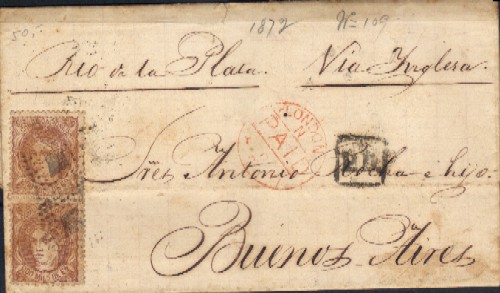 50,-
1872 Nº 109
Rio de la Plata. Via Inglesa.
LONDON
A
P.D.
Sres Antonio Rocha é hijo.
Buenos Aires